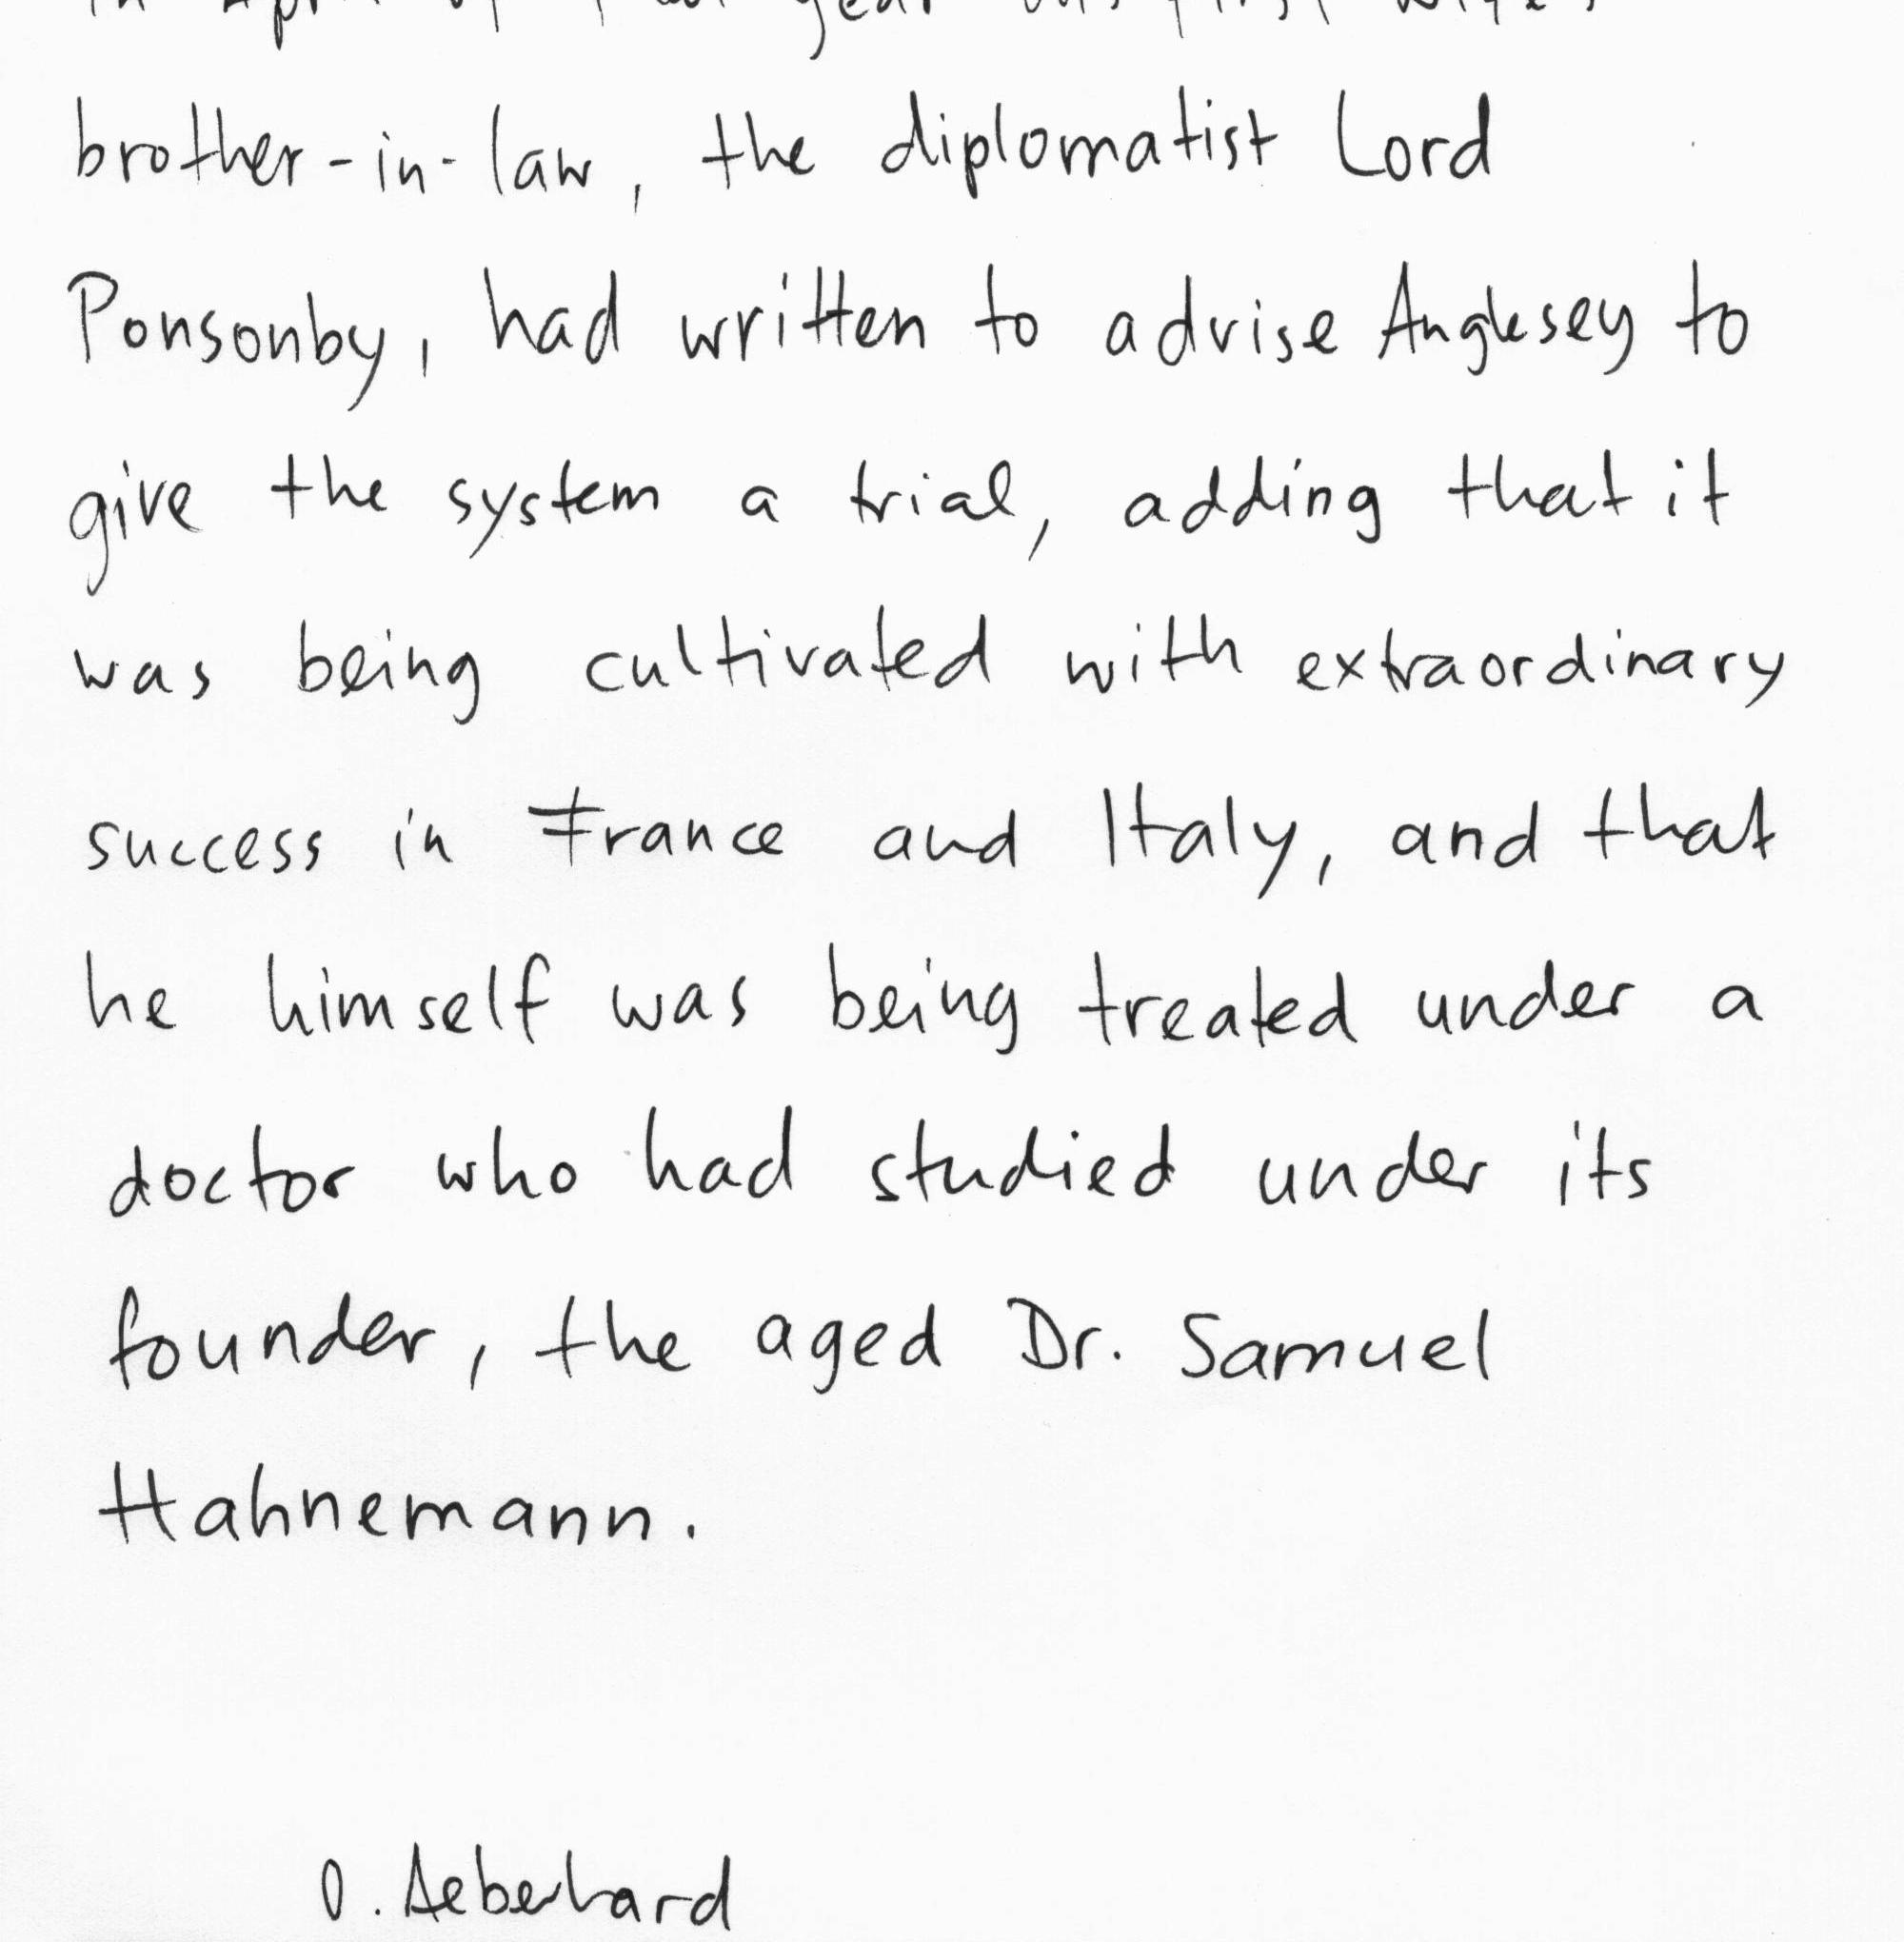 brother-in-law, the diplomatist Lord
Ponsonby, had written to advise Anglesey to
give the system a trial, adding that it
was being cultivated with extraordinary
success in France and Italy, and that
he himself was being treated under a
doctor who had studied under its
founder, the aged Dr. Samuel
Hahnemann.
O. Aeberhard